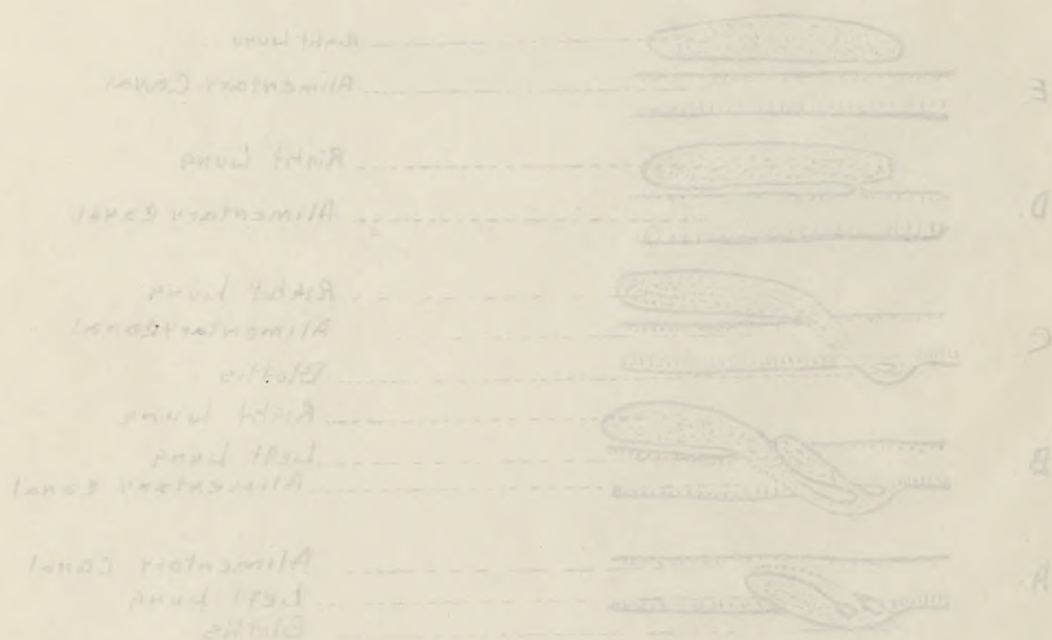 E
Right Lung
Alimentary Canal
D.
Right Lung
Alimentary Canal
C
Right Lung
Alimentary Canal
Glottis
B
Right Lung
Left Lung
Alimentary Canal
A.
Alimentary Canal
Left Lung
Glottis